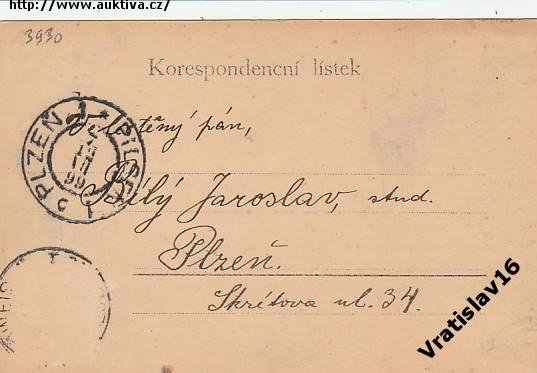 http://www.auktiva.cz/
3930
Korespondencní lístek
PLZEŇ 1 * PILSEN 1
99
pán,
Bílý Jaroslav, stud.
Plzeň.
Skrétova ul. 34.
Vratislav16